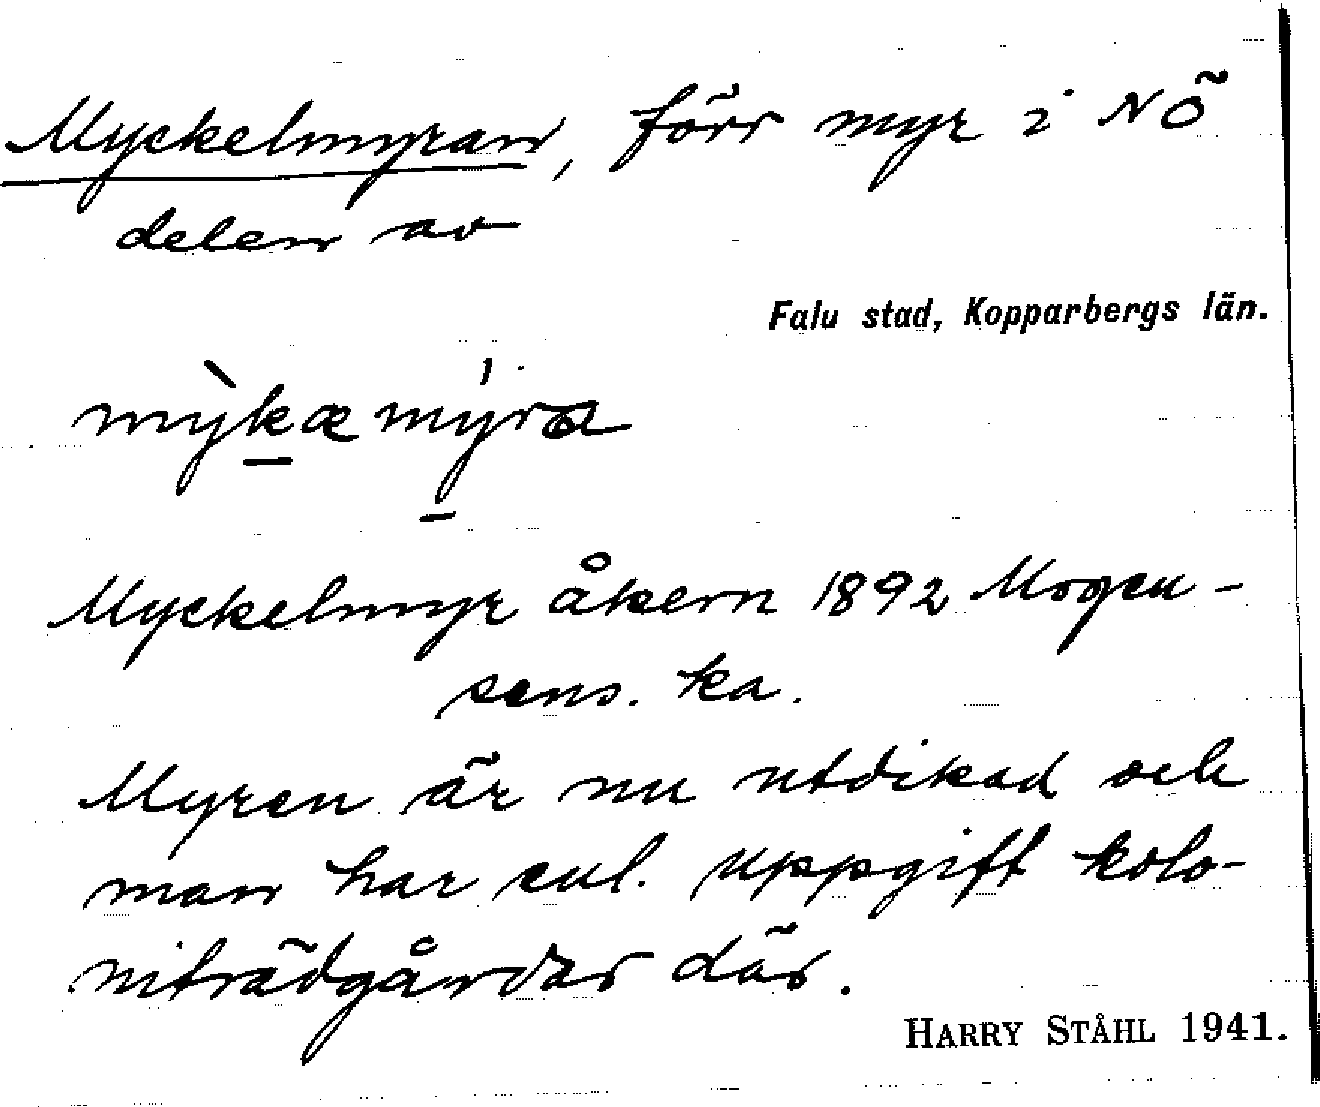 Myckelmyran, förr myr i NÖ
delen av
Falu stad, Kopparbergs län.
mỳkæmýra
Myckelmyr åkern 1892 Mogen-
sens. ka.
Myren är nu utdikad och
man har enl. uppgift kolo-
niträdgårdar där.
HARRY STÅHL 1941.